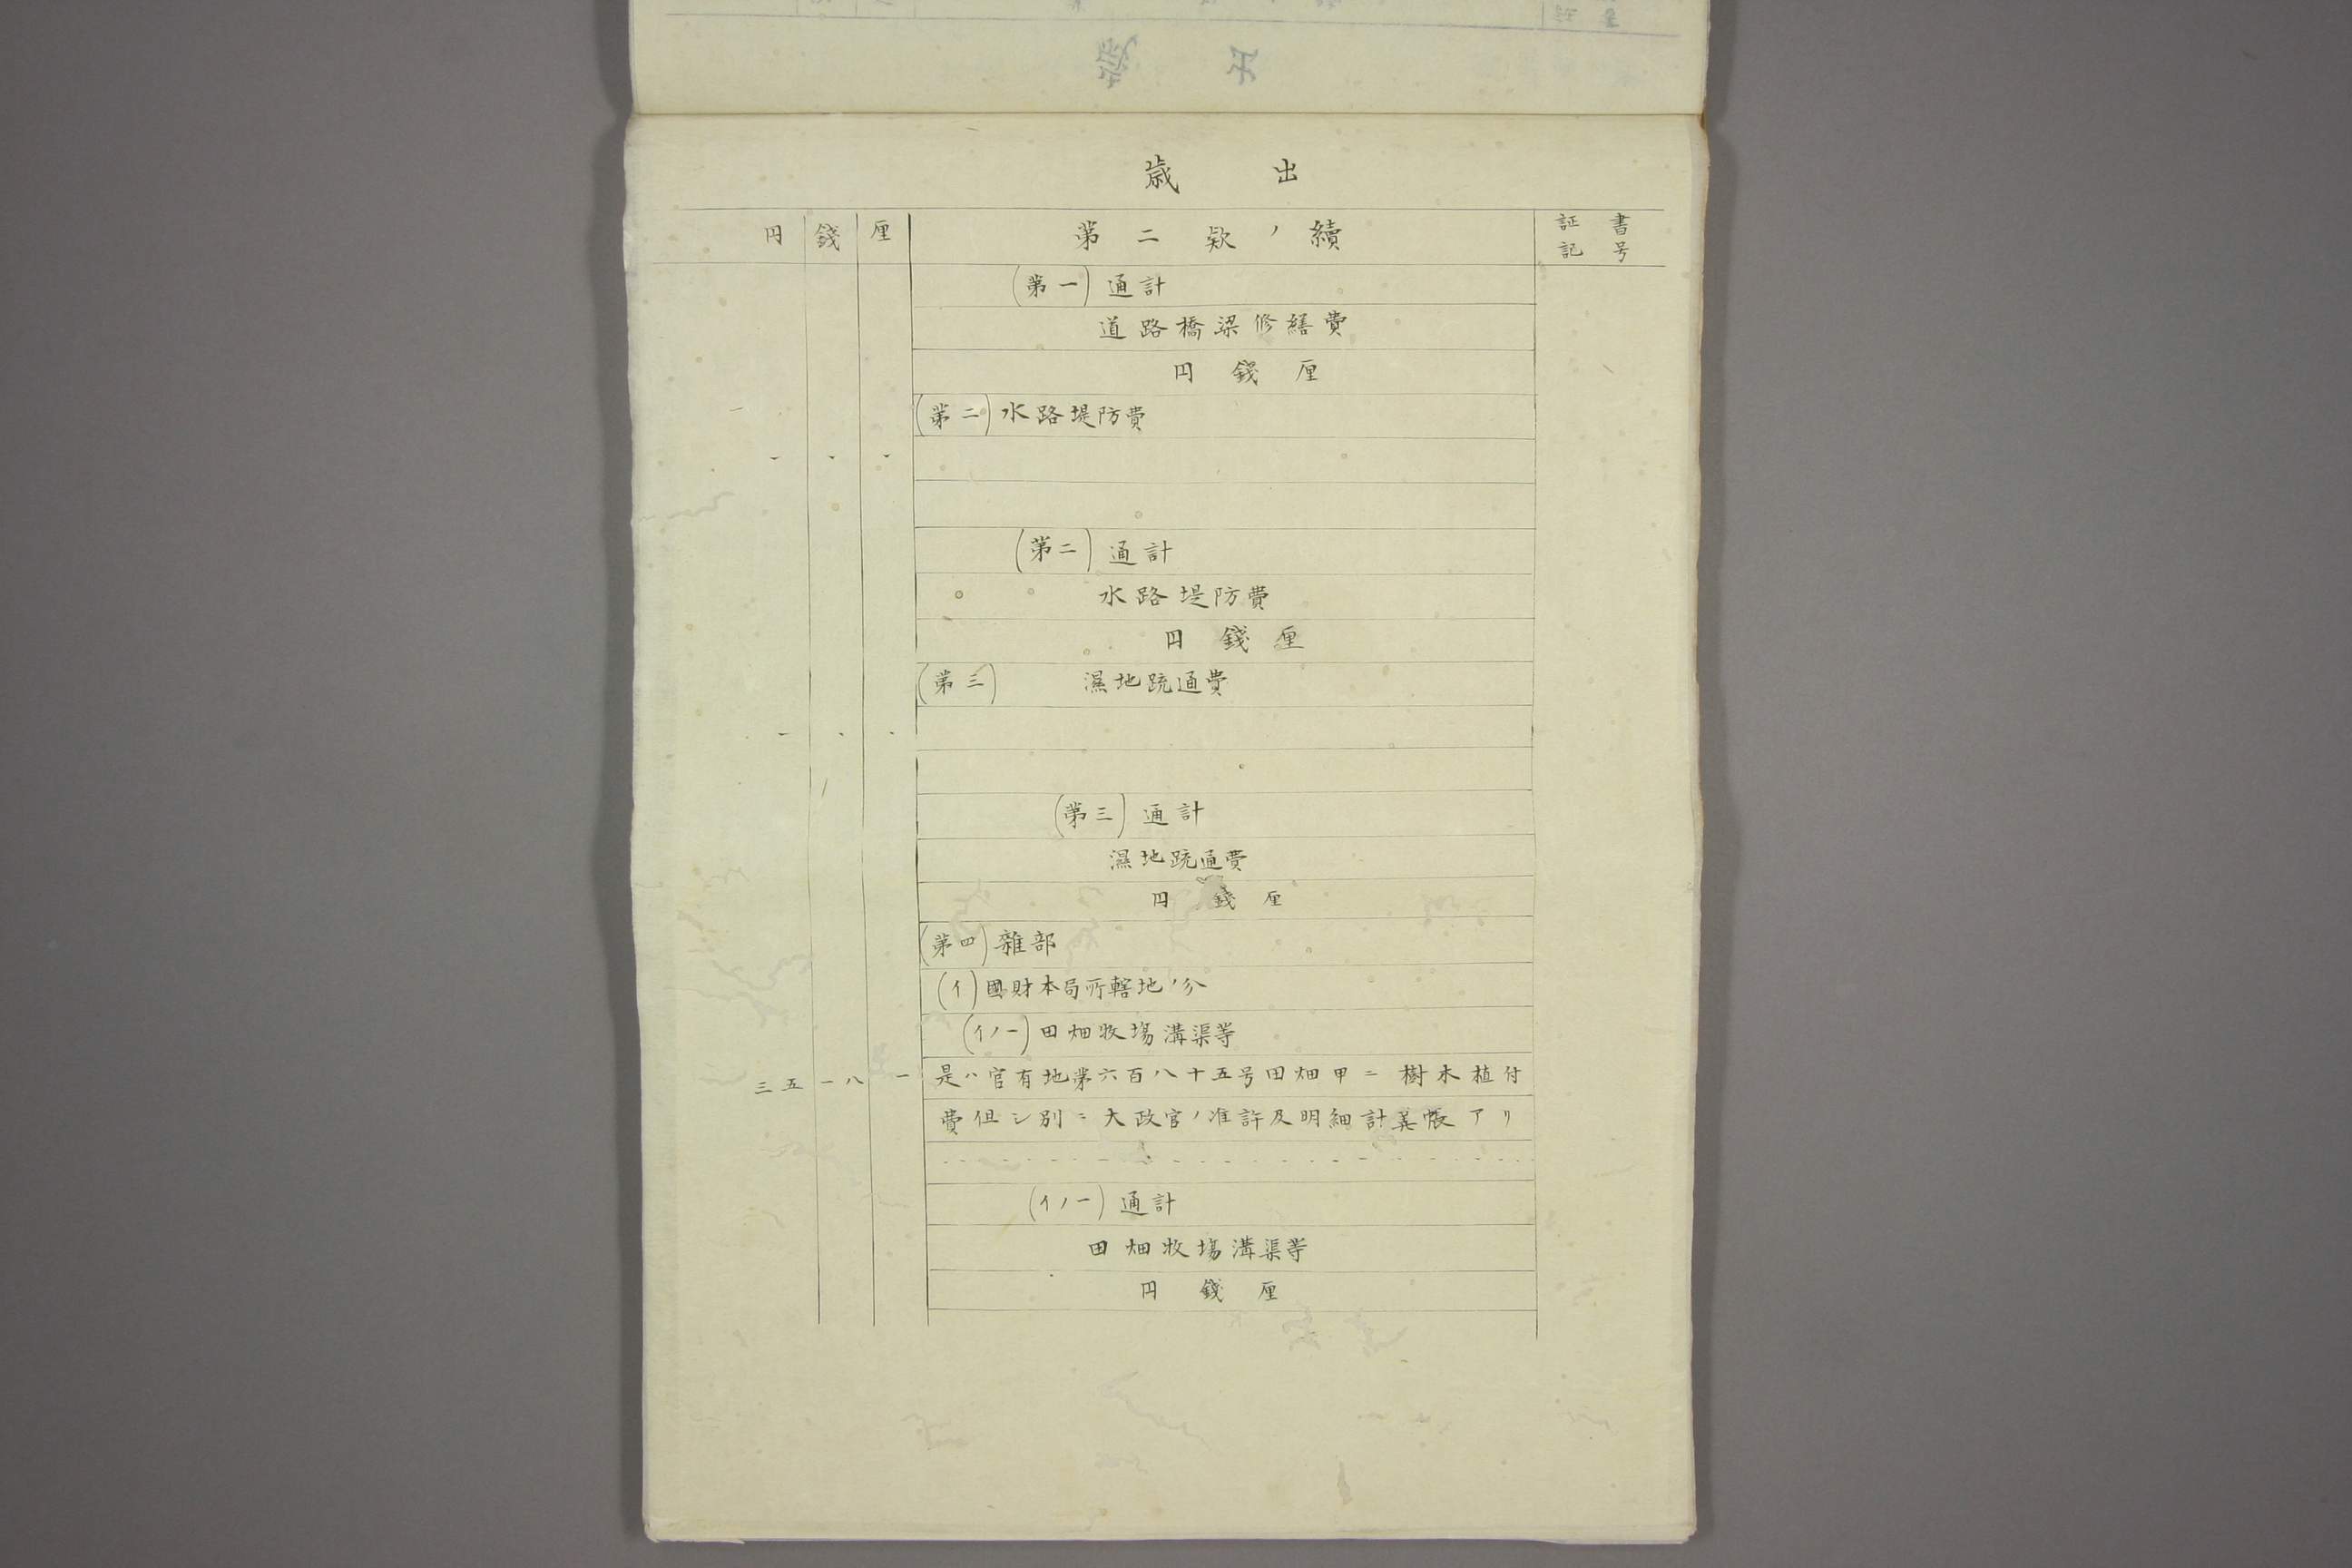 歳出
円 錢 厘 第二款ノ續 証書記号
(第一)通計
道路橋梁修繕費
円 錢 厘
(第二)水路堤防費
(第二)通計
水路堤防費
円 錢 厘
(第三) 濕地䟽通費
(第三)通計
濕地䟽通費
円 錢 厘
(第四)雜部
(イ)國財本局所轄地ノ分
(イノ一)田畑牧塲溝渠等
三五 一八 一 是ハ官有地第六百八十五号田畑甲ニ樹木植付
費但シ別ニ大政官ノ准許及明細計算帳アリ
(イノ一)通計
田畑牧塲溝渠等
円 錢 厘